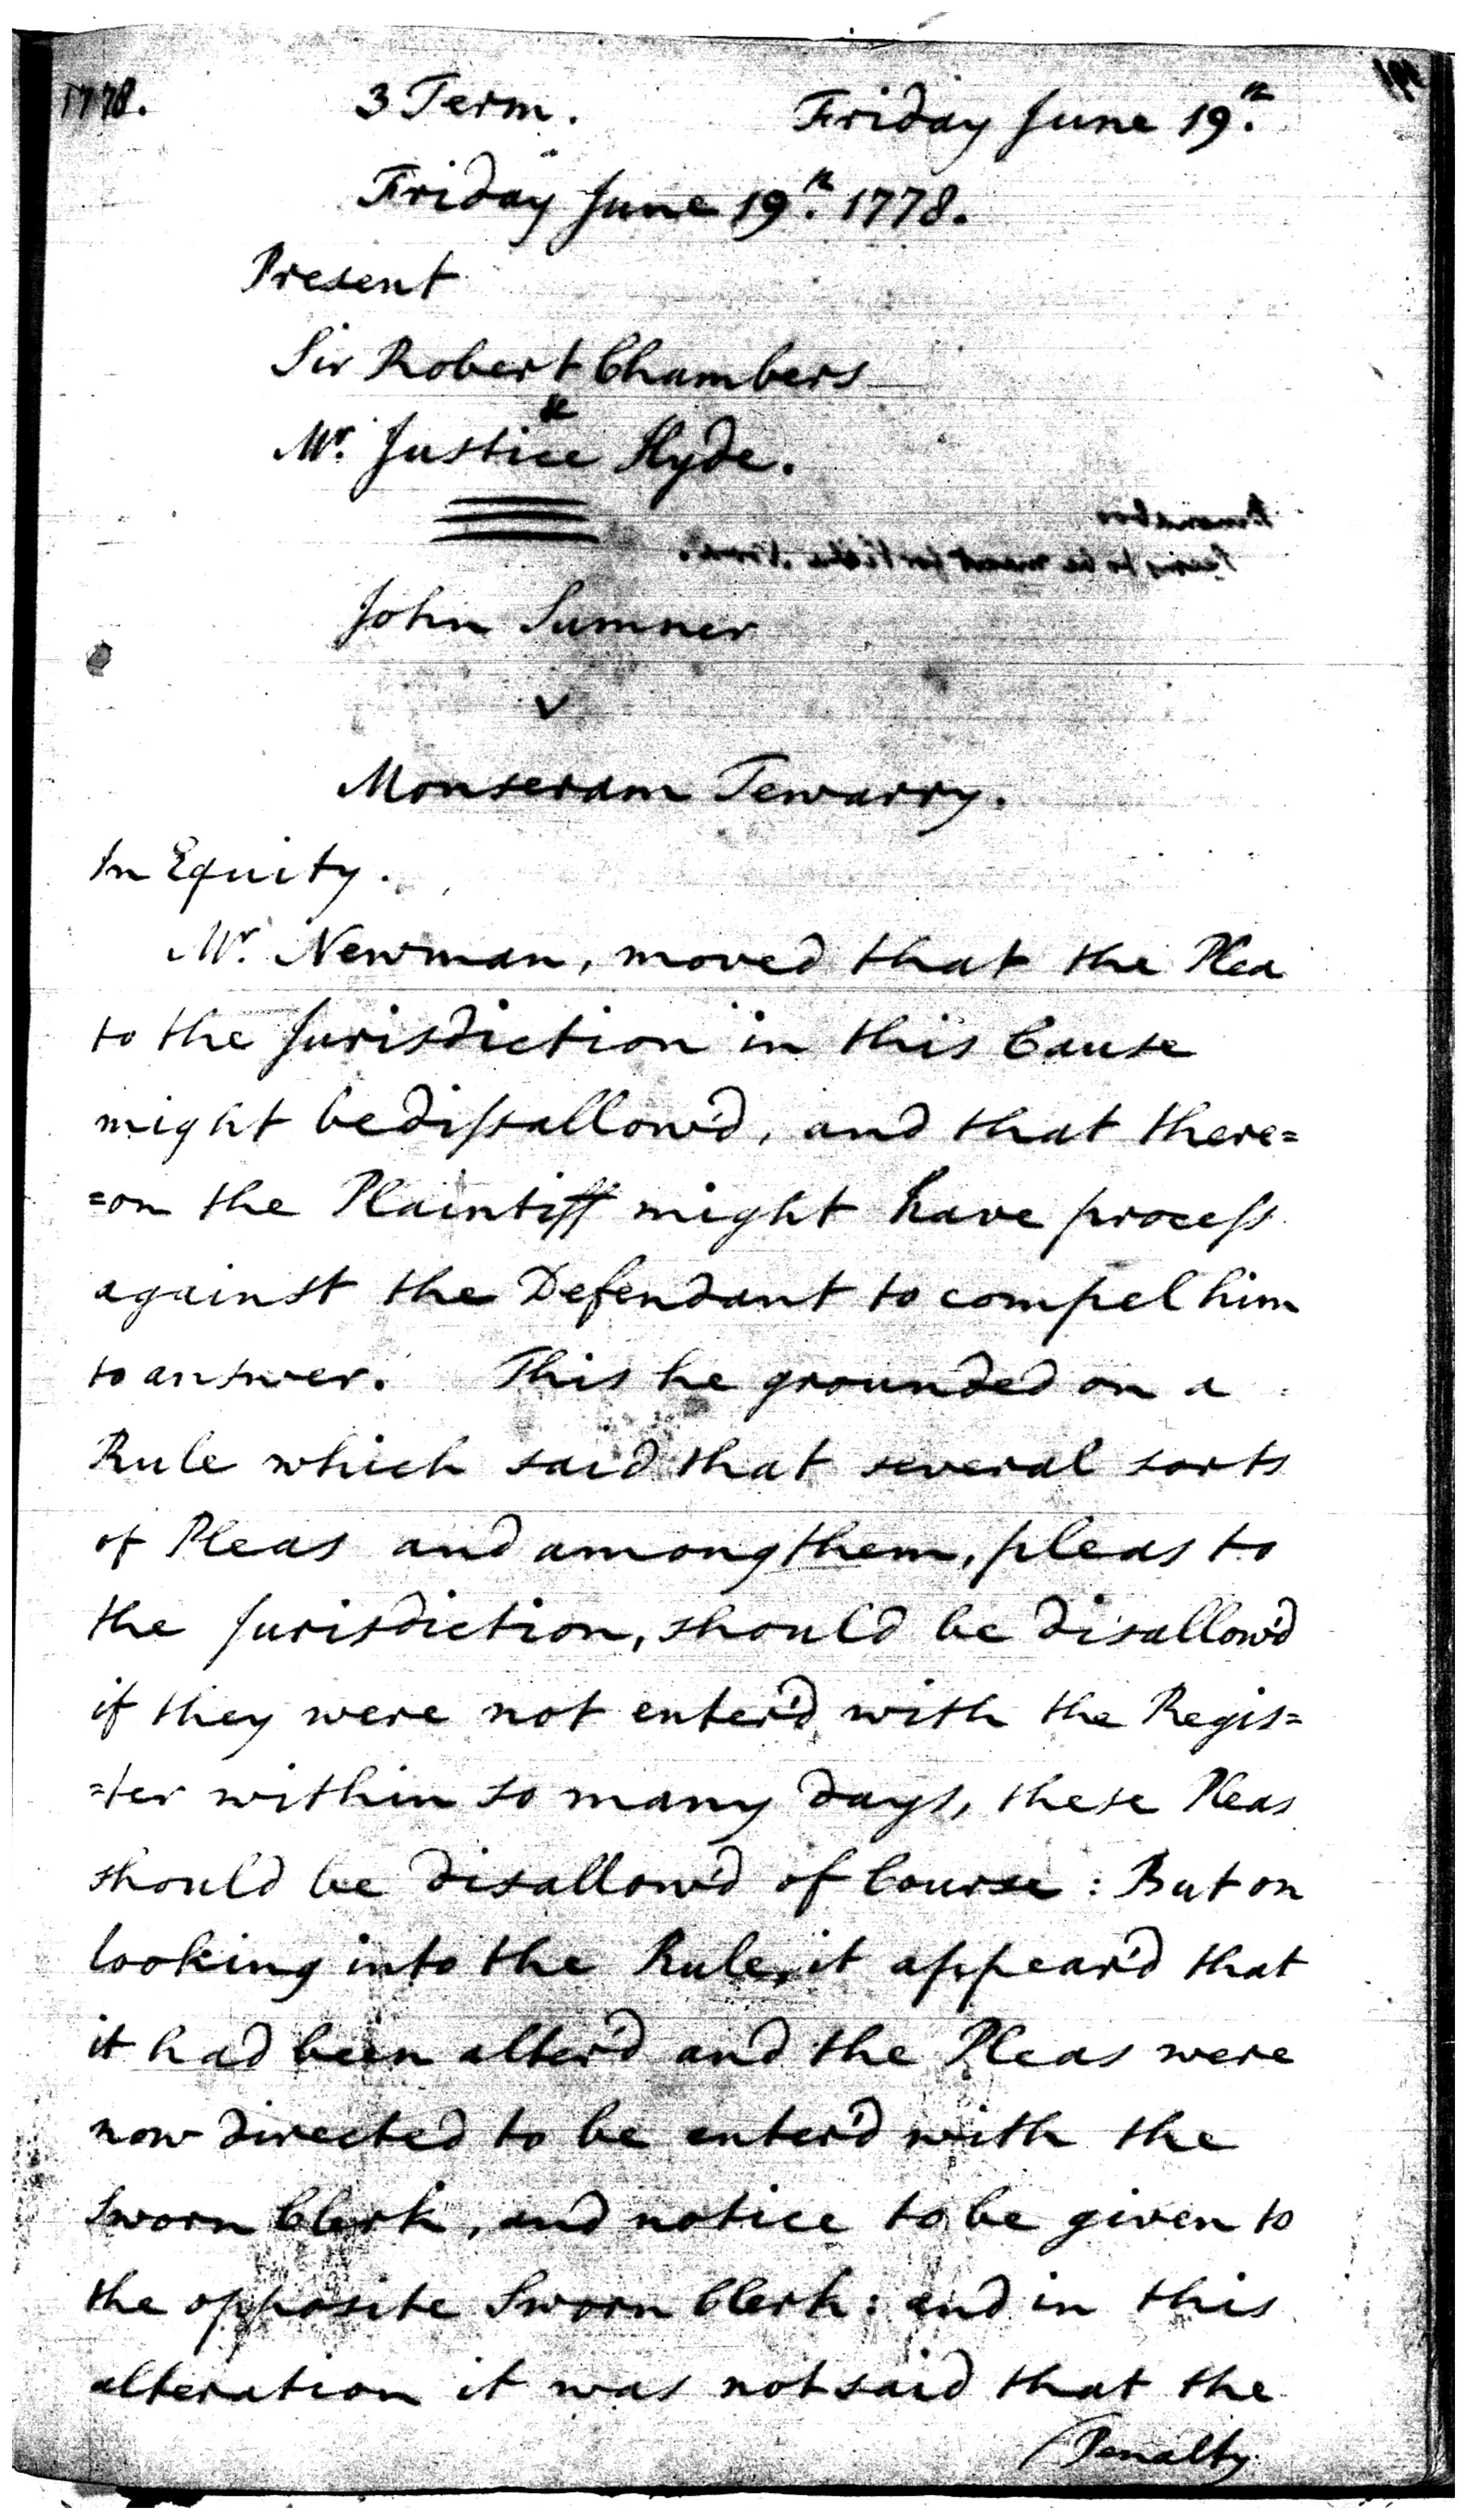 1778. 3 Term. Friday June 19.th
Friday June 19.th 1778.
Present
Sir Robert Chambers
&
Mr. Justice Hyde.
John Sumner
v
Monseram Tewarry.
In Equity.
Mr. Newman, moved that the Plea
to the Jurisdiction in this Cause
might be dissallow'd, and that there=
=on the Plaintiff might have process
against the Defendant to compel him
to answer. This he grounded on a
Rule which said that several sorts
of Pleas and among them, pleas to
the Jurisdiction, should be disallow'd
if they were not enter'd with the Regis=
=ter within so many days, these Pleas
should be disallow'd of Course: But on
looking into the Rule, it appear'd that
it had been alter'd and the Pleas were
now directed to be enter'd with the
Sworn Clerk, and notice to be given to
the opposite Sworn Clerk: and in this
alteration it was not said that the
Penalty